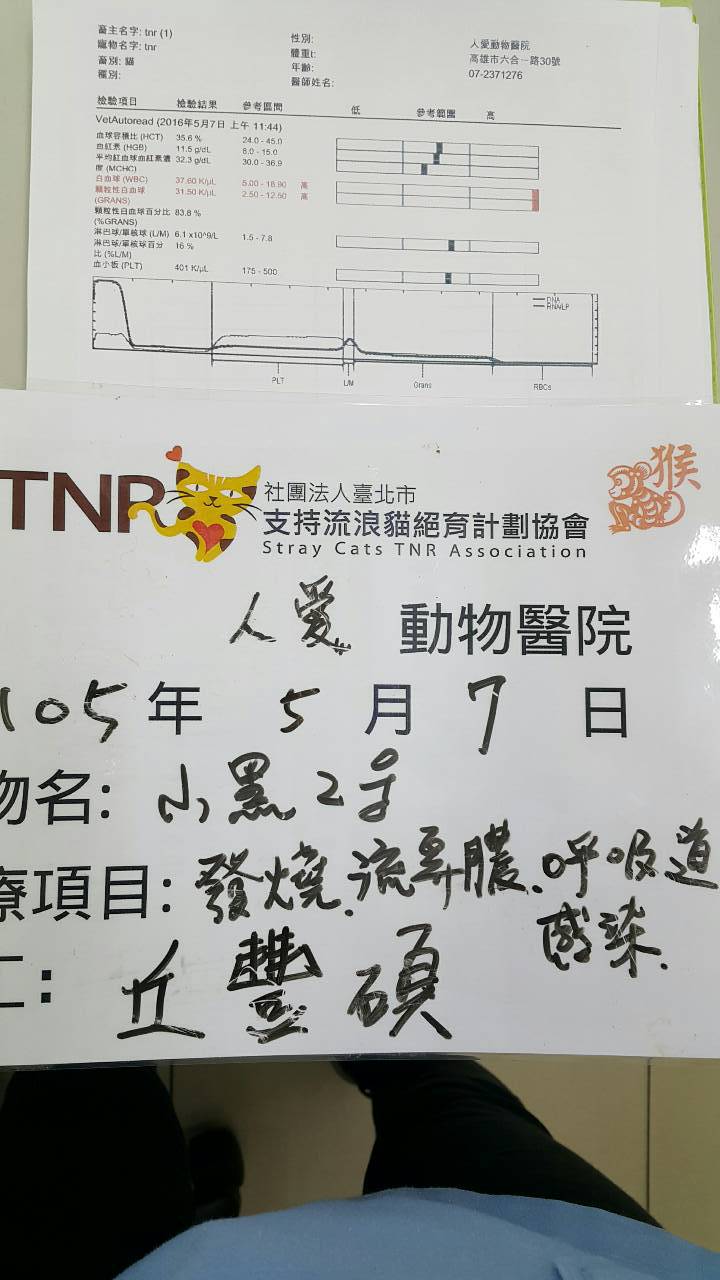 畜主名字: tnr (1)
寵物名字: tnr
畜別: 貓
種別:
性別:
體重t:
年齡:
醫師姓名:
人愛動物醫院
高雄市六合一路30號
07-2371276
檢驗項目 檢驗結果 參考區間 低 參考範圍 高
VetAutoread (2016年5月7日 上午 11:44)
血球容積比 (HCT) 35.6 % 24.0 - 45.0
血紅素 (HGB) 11.5 g/dL 8.0 - 15.0
平均紅血球血紅素濃度 (MCHC) 32.3 g/dL 30.0 - 36.9
白血球 (WBC) 37.60 K/µL 5.00 - 18.90 高
顆粒性白血球 (GRANS) 31.50 K/µL 2.50 - 12.50 高
顆粒性白血球百分比 (%GRANS) 83.8 %
淋巴球/單核球 (L/M) 6.1 x10^9/L 1.5 - 7.8
淋巴球/單核球百分比 (%L/M) 16 %
血小板 (PLT) 401 K/µL 175 - 500
DNA
RNA/LP
PLT L/M Grans RBCs
TNR
社團法人臺北市
支持流浪貓絕育計劃協會
Stray Cats TNR Association
猴
人愛 動物醫院
105年 5月7日
物名: 小黑2号
療項目: 發燒.流鼻膿.呼吸道
感染.
工: 丘豐碩